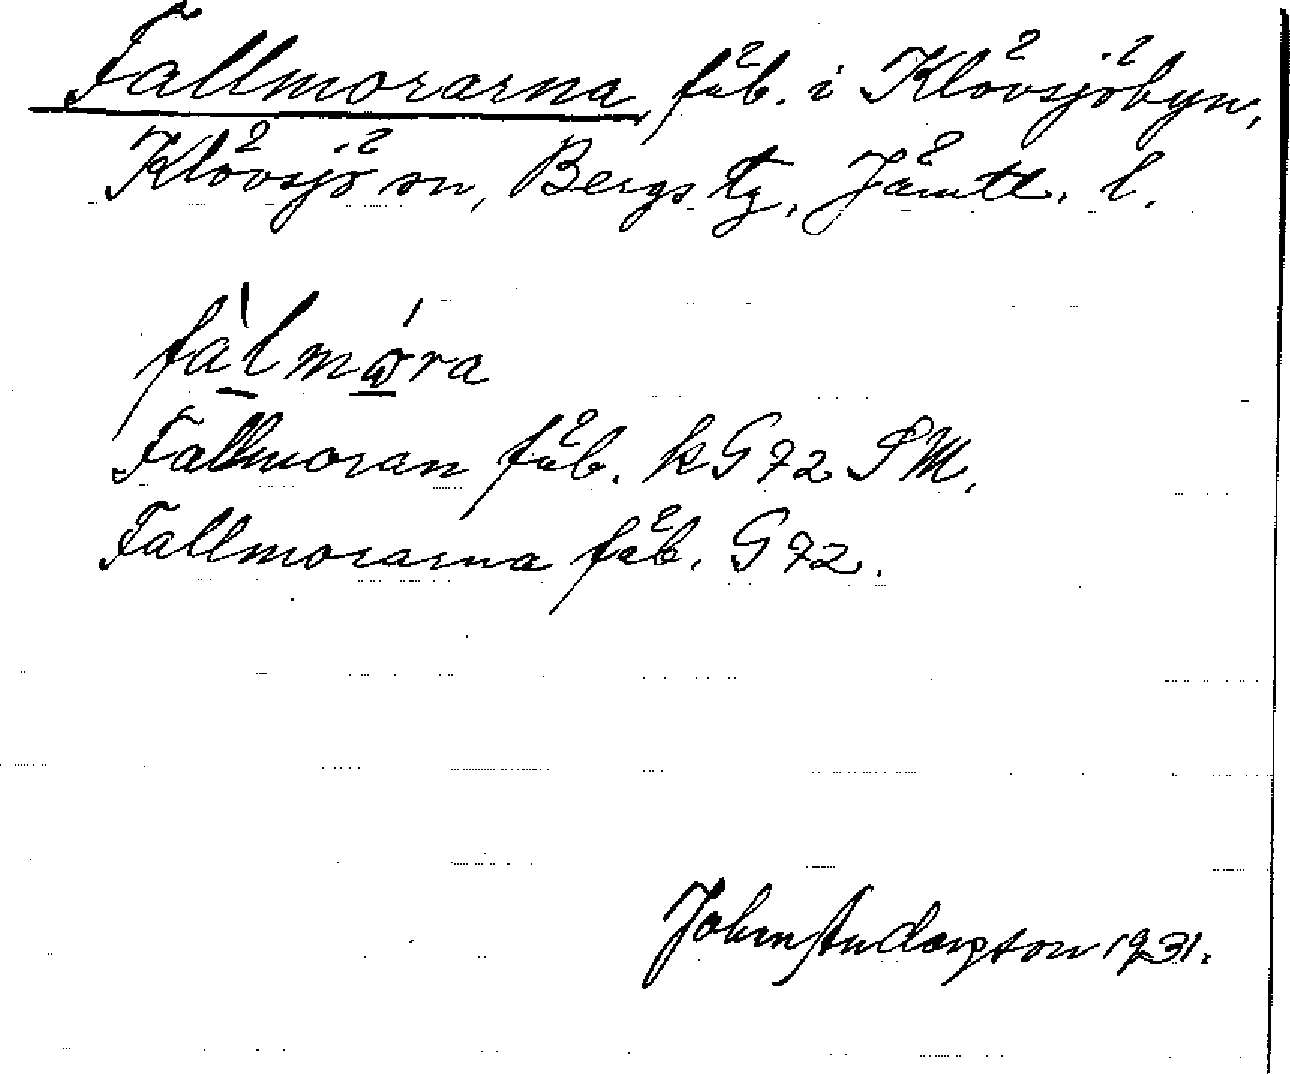 Fallmorarna, fäb. i Klövsjöbyn,
Klövsjö sn, Bergs tg, Jämtl. l.
Fallmoran fäb. k G 72 SM.
Fallmorarna fäb. G 72.
John Andersson 1931.